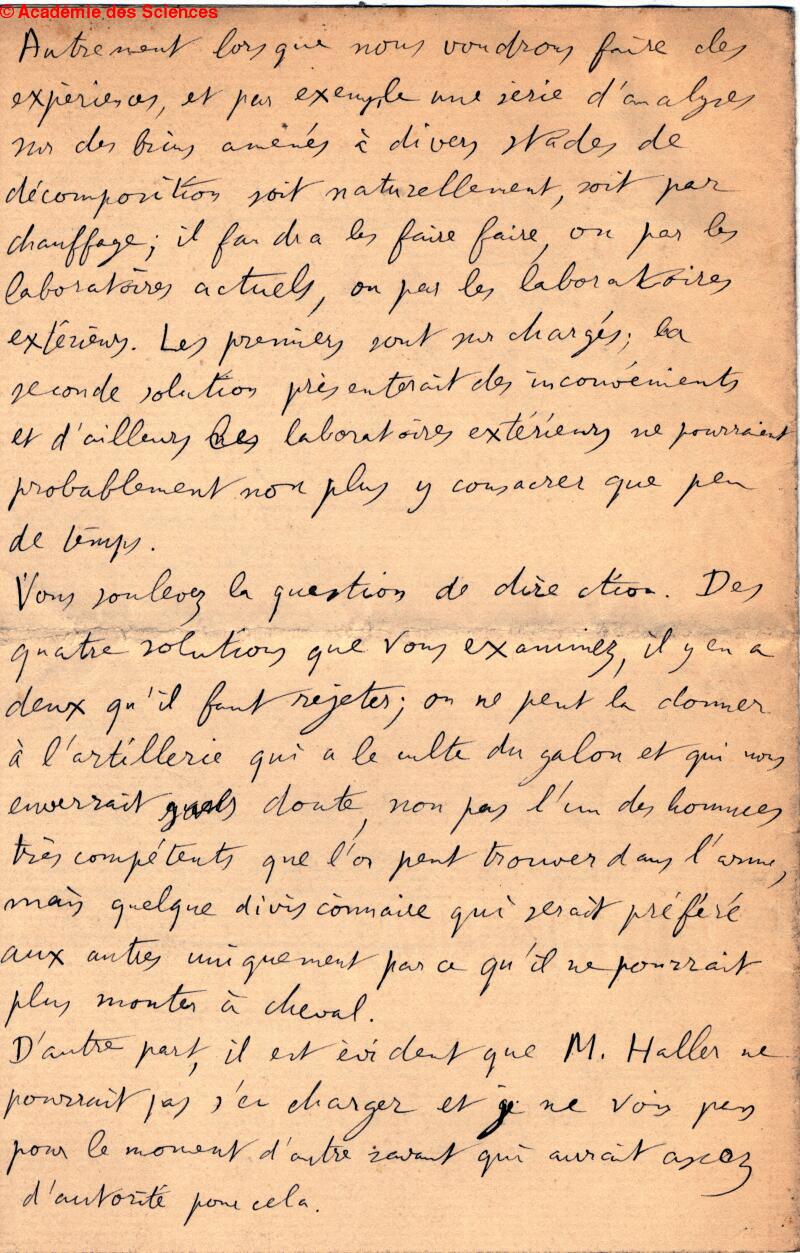 © Académie des Sciences
Autrement lorsque nous voudrons faire des
expériences, et par exemple une série d'analyses
sur des brins amenés à divers stades de
décomposition soit naturellement, soit par
chauffage; il faudra les faire faire, ou par les
laboratoires actuels, ou par les laboratoires
extérieurs. Les premiers sont surchargés; la
seconde solution présenterait des inconvénients
et d'ailleurs les laboratoires extérieurs ne pourraient
probablement non plus y consacrer que peu
de temps.
Vous soulevez la question de direction. Des
quatre solutions que vous examinez, il y en a
deux qu'il faut rejeter; on ne peut la donner
à l'artillerie qui a le culte du galon et qui nous
enverrait sans doute, non pas l'un des hommes
très compétents que l'on peut trouver dans l'arme,
mais quelque divisionnaire qui serait préféré
aux autres uniquement parce qu'il ne pourrait
plus monter à cheval.
D'autre part, il est évident que M. Haller ne
pourrait pas s'en charger et je ne vois pas
pour le moment d'autre savant qui aurait assez
d'autorité pour cela.